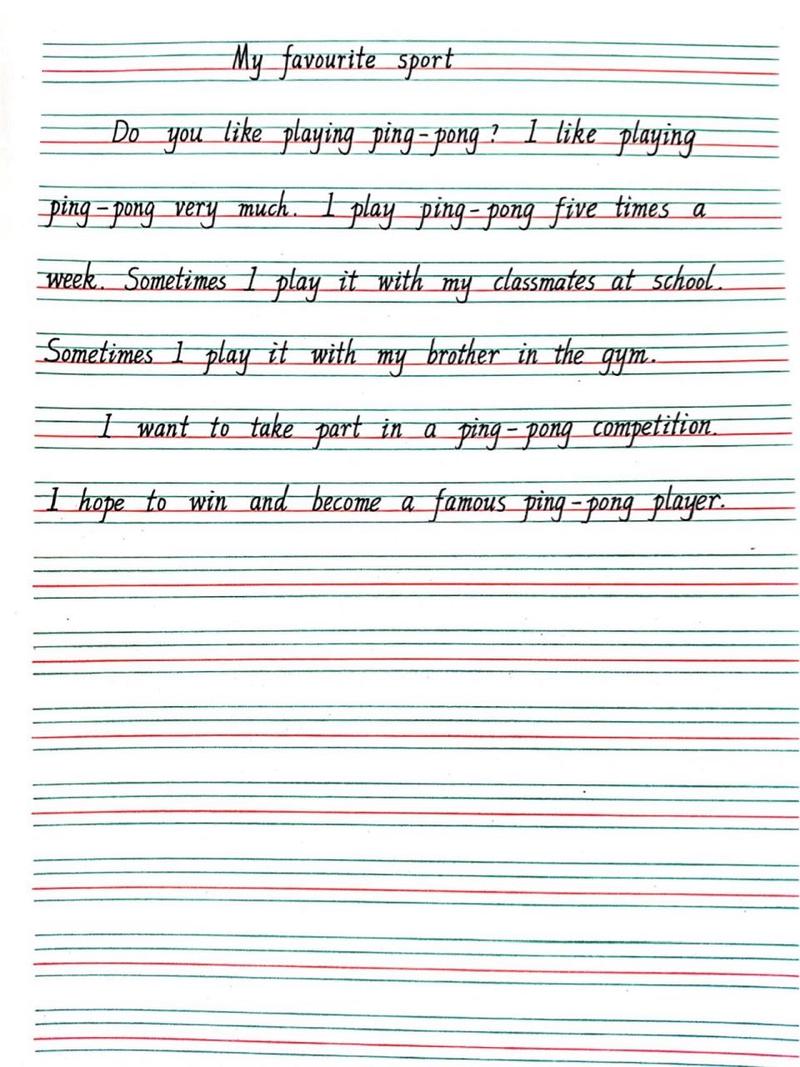 My favourite sport
Do you like playing ping-pong? I like playing
ping-pong very much. I play ping-pong five times a
week. Sometimes I play it with my classmates at school.
Sometimes I play it with my brother in the gym.
I want to take part in a ping-pong competition.
I hope to win and become a famous ping-pong player.